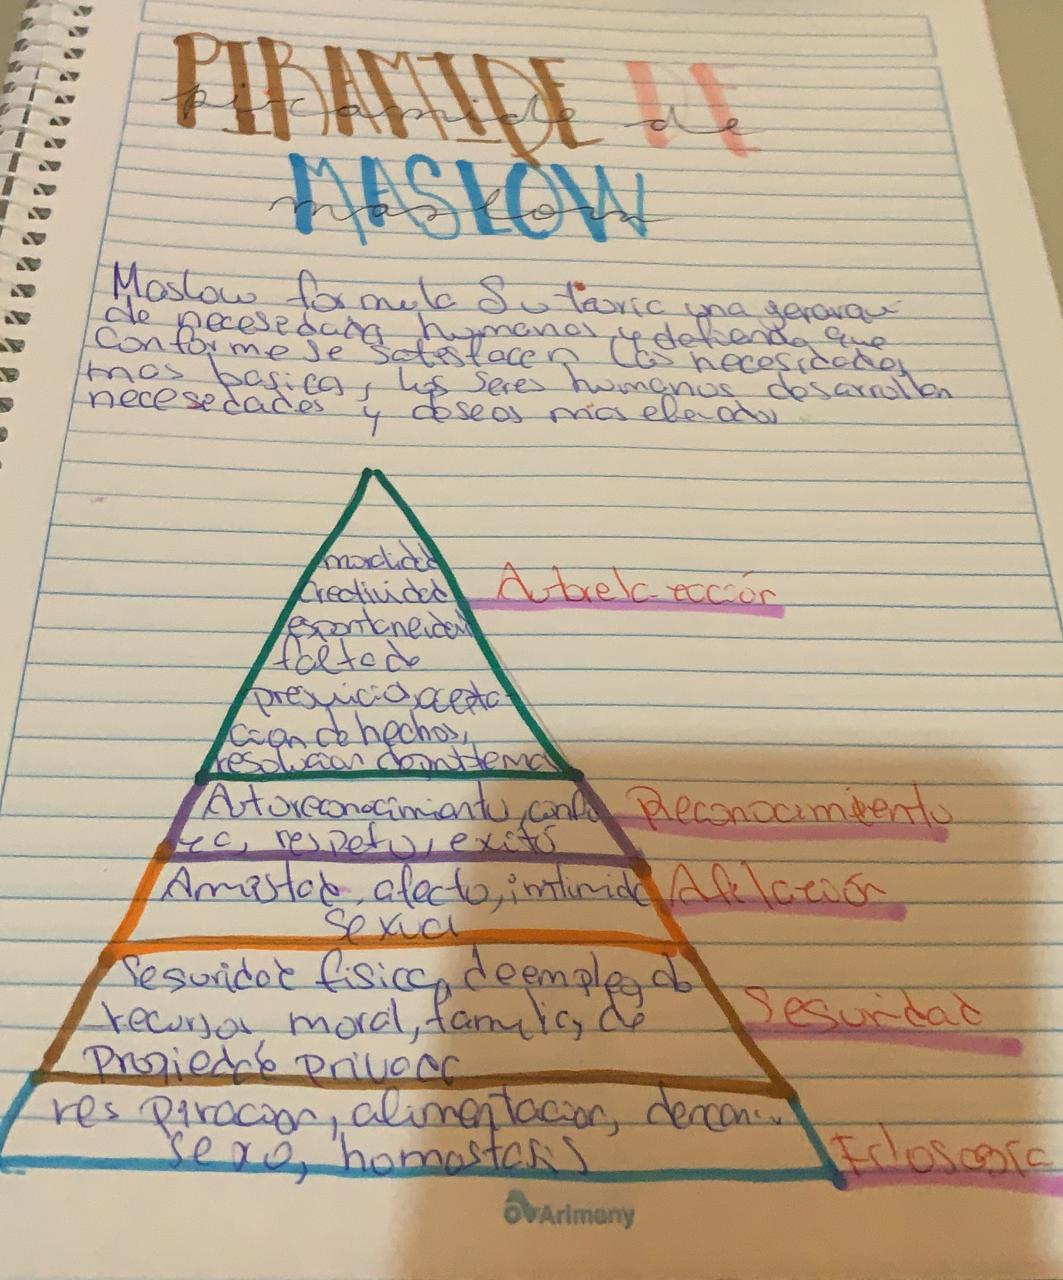 PIRAMIDE DE
piramide de
MASLOW
maslow
Maslow formula Su teoria una gerarqui
de necesedades humanas y defienda que
Conforme se satisfacen las necesidades
mas basicas, los seres humanos desarrollen
necesedades y deseos mas elevados
moralidad
creatividad
espontaneidad
falta de
prejuicio, acepta-
cion de hechos,
resolucion de
Autoreconocimiento, confi
za, respeto, exito
Amistad, afecto, intimida
Sexual
Seguridad fisica, de empleo, de
recursos moral, familia, de
Propiedad privada
respiracion, alimentacion,
sexo, homostasis
Reconocimiento
Afilación
Seguridad
Arimany